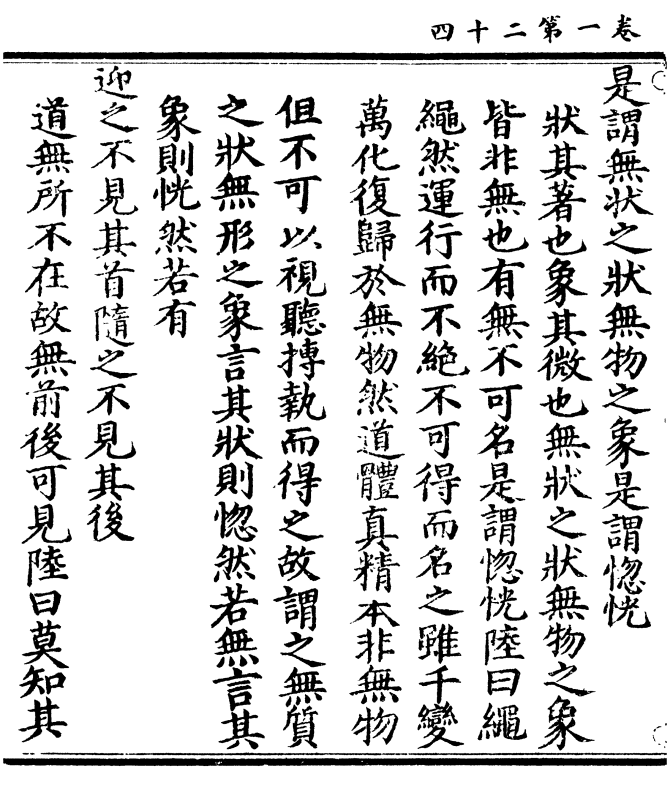 卷一第二十四
是謂無狀之狀無物之象是謂惚恍
狀其著也象其微也無狀之狀無物之象
皆非無也有無不可名是謂惚恍陸曰繩
繩然運行而不絕不可得而名之雖千變
萬化復歸於無物然道體真精本非無物
但不可以視聽摶執而得之故謂之無質
之狀無形之象言其狀則惚然若無言其
象則恍然若有
迎之不見其首隨之不見其後
道無所不在故無前後可見陸曰莫知其